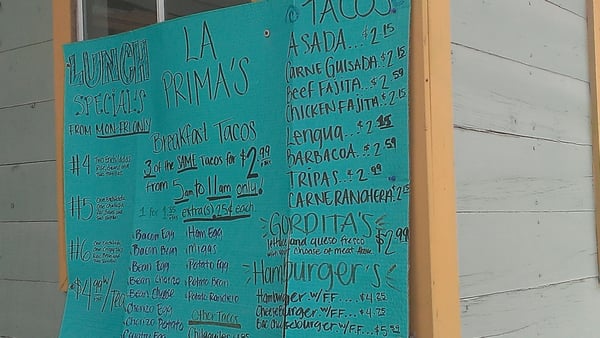 LUNCH
SPECIALS
FROM MON-FRI ONLY
#4
#5
#6
$4.99 w/
TEA
LA
PRIMA'S
Breakfast Tacos
3 of the SAME Tacos for $2.99
From 5am to 11am only!
extra(s) 25¢ each
Bacon Egg
Bacon Bean
Bean Egg
Bean Chorizo
Bean Cheese
Chorizo Egg
Chorizo Potato
Country Egg
Ham Egg
Migas
Potato Egg
Potato Bean
Potato Ranchero
Other Tacos
TACOS
ASADA... $2.15
CARNE GUISADA.. $2.15
Beef FAJITA.. $2.59
CHICKEN FAJITA.. $2.15
Lengua... $2
BARBACOA... $2.59
TRIPAS... $2.99
CARNE RANCHERA.. $2.15
GORDITA'S
and queso fresco
choose of meat $2.99
Hamburger's
Hamburger w/FF.... $4.25
Cheeseburger w/FF... $4.75
Bac Cheeseburger w/FF... $5.39